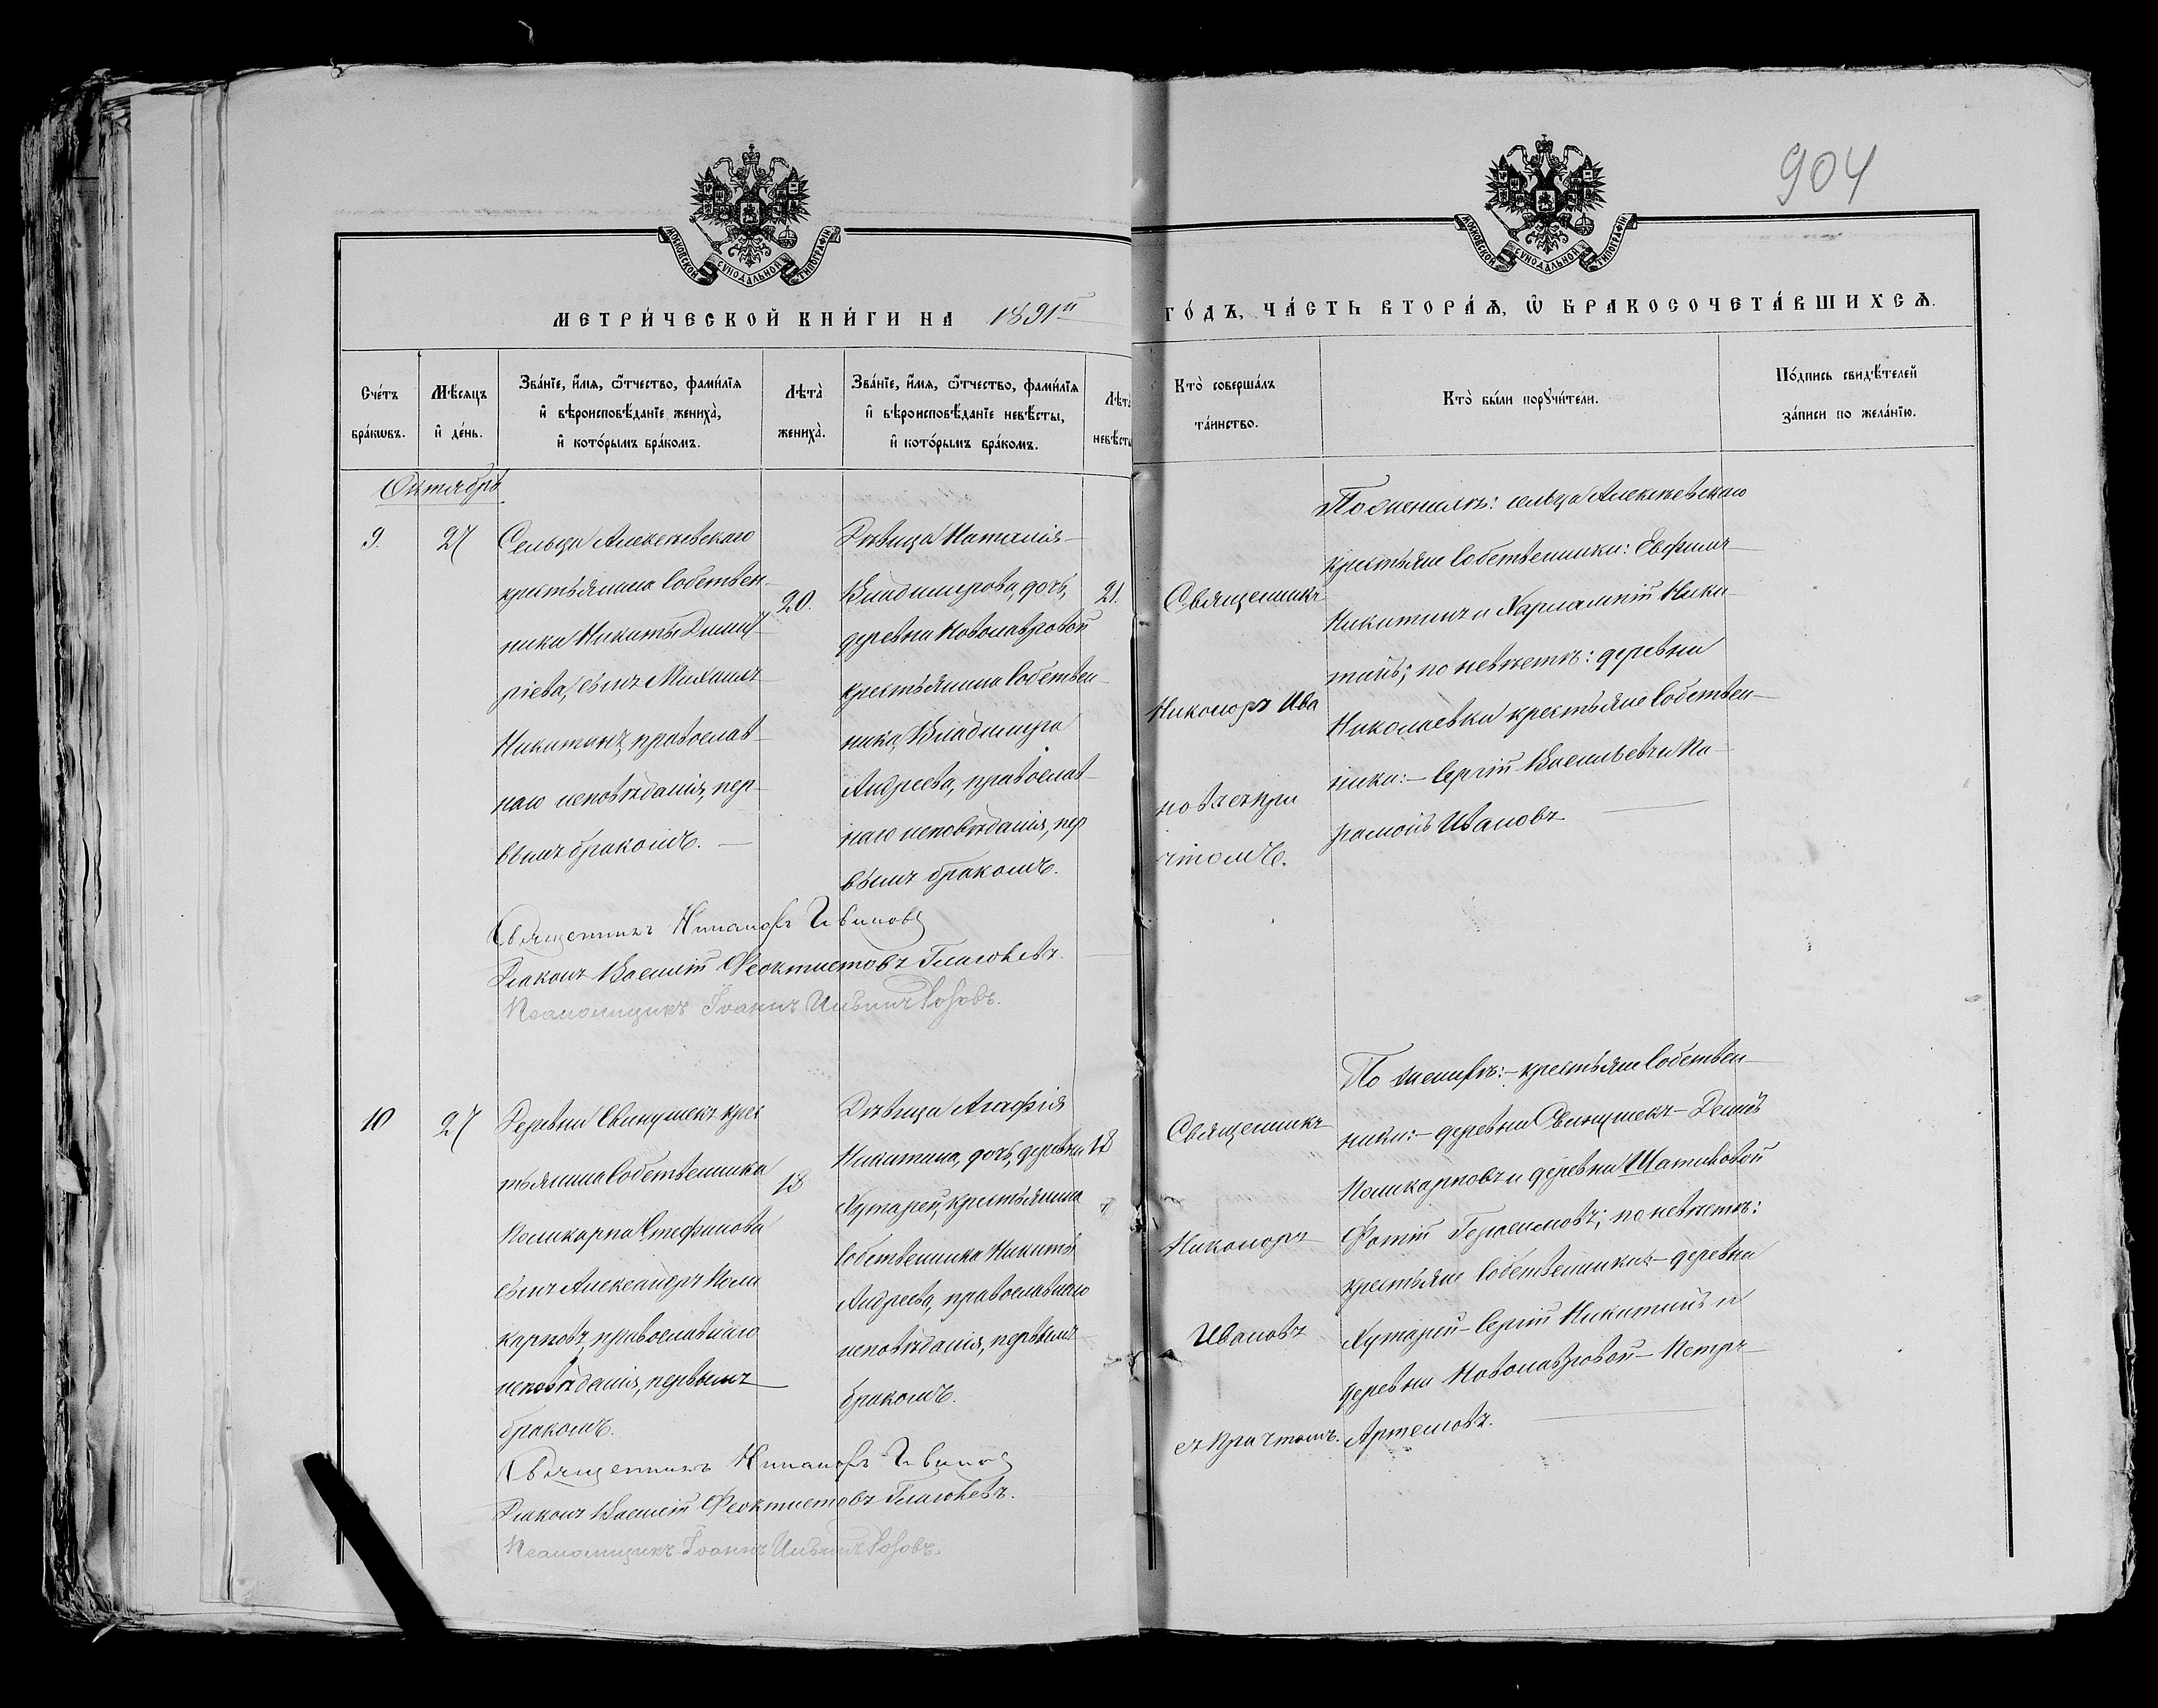 904
МОСКОВСКОЙ СѴНОДАЛЬНОЙ ТИПОГРАФІИ
МОСКОВСКОЙ СѴНОДАЛЬНОЙ ТИПОГРАФІИ
МЕТРИ́ЧЕСКОЙ КНИ́ГИ НА 1891й ГО́ДЪ, ЧА́СТЬ ВТОРА́Ѧ, Ѽ БРАКОСОЧЕТА́ВШИХСѦ.
Сче́тъ
бра́кωвъ.
Мѣ́сяцъ
и҆ де́нь.
Зва́нїе, и҆́мѧ, ѻ҆́тчество, фами́лїѧ
и҆ вѣроисповѣ́данїе жениха̀,
и҆ кото́рымъ бра́комъ.
Лѣта̀
жениха̀.
Зва́нїе, и҆́мѧ, ѻ҆́тчество, фами́лїѧ
и҆ вѣроисповѣ́данїе невѣ́сты,
и҆ кото́рымъ бра́комъ.
Лѣта
невѣсты
Кто̀ соверша́лъ
та́инство.
Кто̀ бы́ли порꙋчи́тели.
По́дпись свидѣ́телей
за́писи по жела́нїю.
Октябрь
9.
27
Сельца Алексѣевскаго
крестьянина собствен-
ника Никиты Димит-
ріева, сынъ Михаилъ
Никитинъ, православ-
наго исповѣданія, пер-
вымъ бракомъ.
20.
Дѣвица Наталія
Владимирова, дочь,
деревни Новолавровой
крестьянина собствен-
ника, Владимира
Андреева, православ-
наго исповѣданія, пер
вымъ бракомъ.
21.
Священникъ
Никоноръ Ива
новъ съ при
чтомъ.
По женихѣ: сельца Алексѣевскаго
крестьяне собственники: Евфимъ
Никитинъ и Харлампій Ники
тинъ; по невѣстѣ: деревни
Николаевки крестьяне собствен-
ники:- Сергій Васильевъ и Па-
рамонъ Ивановъ
Священникъ Никаноръ Ивановъ
Діаконъ Василій Ѳеоктистовъ Глаголевъ.
Псаломщикъ Іоаннъ Ильинъ Розовъ.
10
27
Деревни Свинушекъ крес
тьянина собственника
Поликарпа Стефанова
сынъ Александръ Поли
карповъ, православнаго
исповѣданія, первымъ
бракомъ.
18
Дѣвица Агафія
Никитина, дочь, деревни
Хутарей, крестьянина
собственника Никиты
Андреева, православнаго
исповѣданія, первымъ
бракомъ.
18
Священникъ
Никоноръ
Ивановъ
съ причтомъ.
По женихѣ:- крестьяне собствен-
ники:- деревни Свинушекъ-
Поликарповъ и деревни Шатиловой
Фотій Герасимовъ; по невѣстѣ:
крестьяне собственники:- деревни
Хутарей- Сергій Никитинъ и
деревни Новолавровой- Петръ
Артемовъ.
Священникъ Никаноръ Ивановъ
Діаконъ Василій Ѳеоктистовъ Глаголевъ.
Псаломщикъ Іоаннъ Ильинъ Розовъ.